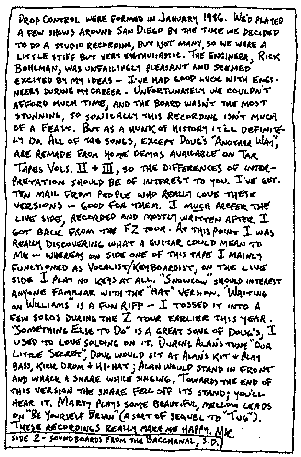 DROP CONTROL WERE FORMED IN JANUARY 1986. WE'D PLAYED
A FEW SHOWS AROUND SAN DIEGO BY THE TIME WE DECIDED
TO DO A STUDIO RECORDING, BUT NOT MANY, SO WE WERE A
LITTLE STIFF BUT VERY ENTHUSIASTIC. THE ENGINEER, RICK
BOHLMAN, WAS UNFAILINGLY PLEASANT AND SEEMED
EXCITED BY MY IDEAS - I'VE HAD GOOD LUCK WITH ENGI-
NEERS DURING MY CAREER - UNFORTUNATELY WE COULDN'T
AFFORD MUCH TIME, AND THE BOARD WASN'T THE MOST
STUNNING, SO SONICALLY THIS RECORDING ISN'T MUCH
OF A FEAST. BUT AS A HUNK OF HISTORY IT'LL DEFINITE-
LY DO. ALL OF THE SONGS, EXCEPT DOUG'S "ANOTHER WAY,"
ARE REMADE FROM HOME DEMOS AVAILABLE ON TAR
TAPES VOLS. II + III, SO THE DIFFERENCES OF INTER-
PRETATION SHOULD BE OF INTEREST TO YOU. I'VE GOT-
TEN MAIL FROM PEOPLE WHO REALLY LOVE THESE
VERSIONS - GOOD FOR THEM. I MUCH PREFER THE
LIVE SIDE, RECORDED AND MOSTLY WRITTEN AFTER I
GOT BACK FROM THE FZ TOUR. AT THIS POINT I WAS
REALLY DISCOVERING WHAT A GUITAR COULD MEAN TO
ME - WHEREAS ON SIDE ONE OF THIS TAPE I MAINLY
FUNCTIONED AS VOCALIST/KEYBOARDIST, ON THE LIVE
SIDE I PLAY NO KEYS AT ALL. "SNOWCOW" SHOULD INTEREST
ANYONE FAMILIAR WITH THE "HAT" VERSION. "WAITING
ON WILLIAMS" IS A FUN RIFF - I TOSSED IT INTO A
FEW SOLOS DURING THE Z TOUR EARLIER THIS YEAR.
"SOMETHING ELSE TO DO" IS A GREAT SONG OF DOUG'S, I
USED TO LOVE SOLOING ON IT. DURING ALAN'S TUNE "OUR
LITTLE SECRET", DOUG WOULD SIT AT ALAN'S KIT & PLAY
BASS, KICK DRUM & HI-HAT; ALAN WOULD STAND IN FRONT
AND WHACK A SNARE WHILE SINGING. TOWARDS THE END OF
THIS VERSION THE SNARE FELL OFF ITS STAND; YOU'LL
HEAR IT. MARTY PLAYS SOME BEAUTIFUL, MELLOW LEADS
ON "BE YOURSELF BRIAN" (A SORT OF SEQUEL TO "TUG").
THESE RECORDINGS REALLY MAKE ME HAPPY. MK
SIDE 2 - SOUNDBOARDS FROM THE BACCHANAL, S.D.